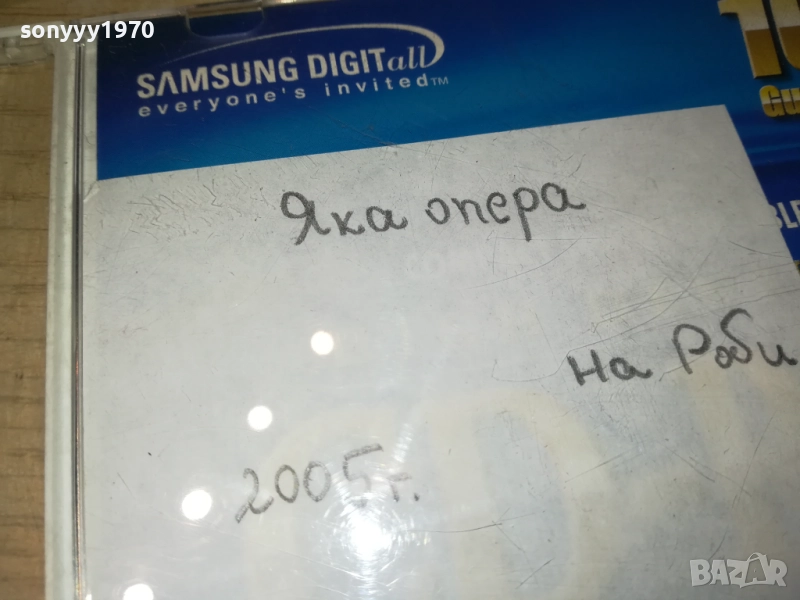 sonyyy1970
SAMSUNG DIGITall
everyone's invited™
Яка опера
на Роби
2005г.
BAZAR